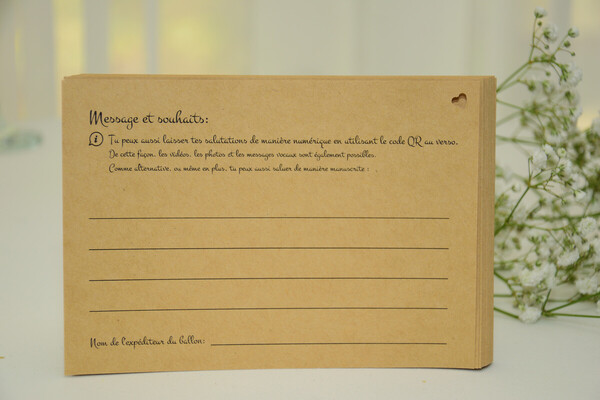 Message et souhaits:
i Tu peux aussi laisser tes salutations de manière numérique en utilisant le code QR au verso.
De cette façon, les vidéos, les photos et les messages vocaux sont également possibles.
Comme alternative, ou même en plus, tu peux aussi saluer de manière manuscrite :
Nom de l'expéditeur du ballon: